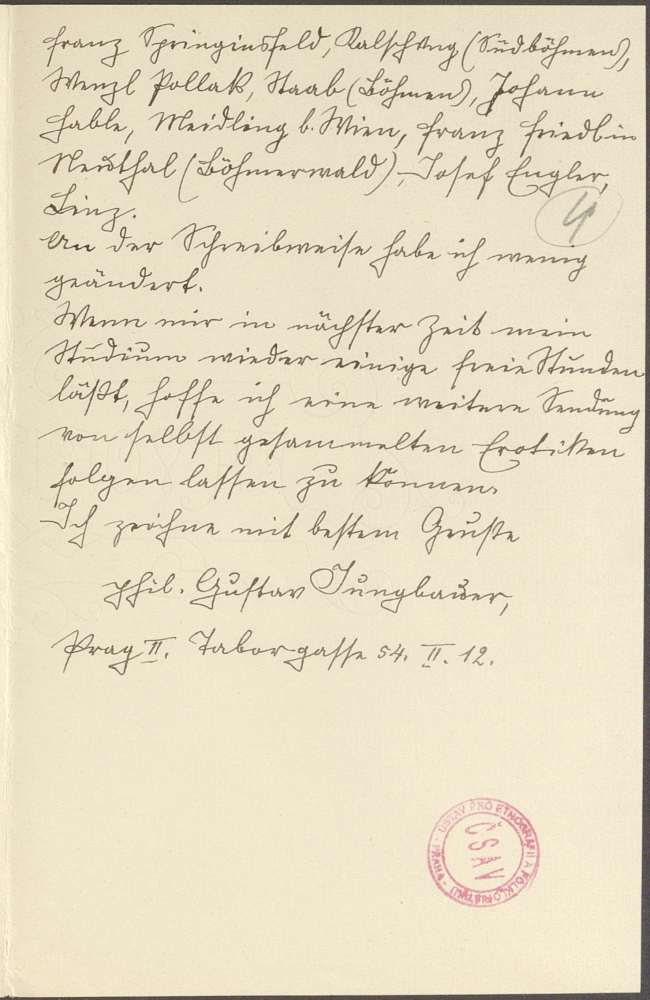 Franz Springinsfeld, Kalsching (Südböhmen),
Wenzl Pollak, Staab (Böhmen), Johann
Hable, Meidling b. Wien, Franz Friedl in
Neuthal (Böhmerwald), Josef Engler,
Linz.
4
An der Schreibweise habe ich wenig
geändert.
Wenn mir in nächster Zeit mein
Studium wieder einige freie Stunden
läßt, hoffe ich eine weitere Sendung
von selbst gesammelten Erotiken
folgen lassen zu können.
Ich zeichne mit bestem Gruße
phil. Gustav Jungbauer,
Prag II. Taborgasse 54. II. 12.
ÚSTAV PRO ETNOGRAFII A FOLKLORISTIKU - PRAHA -
ČSAV